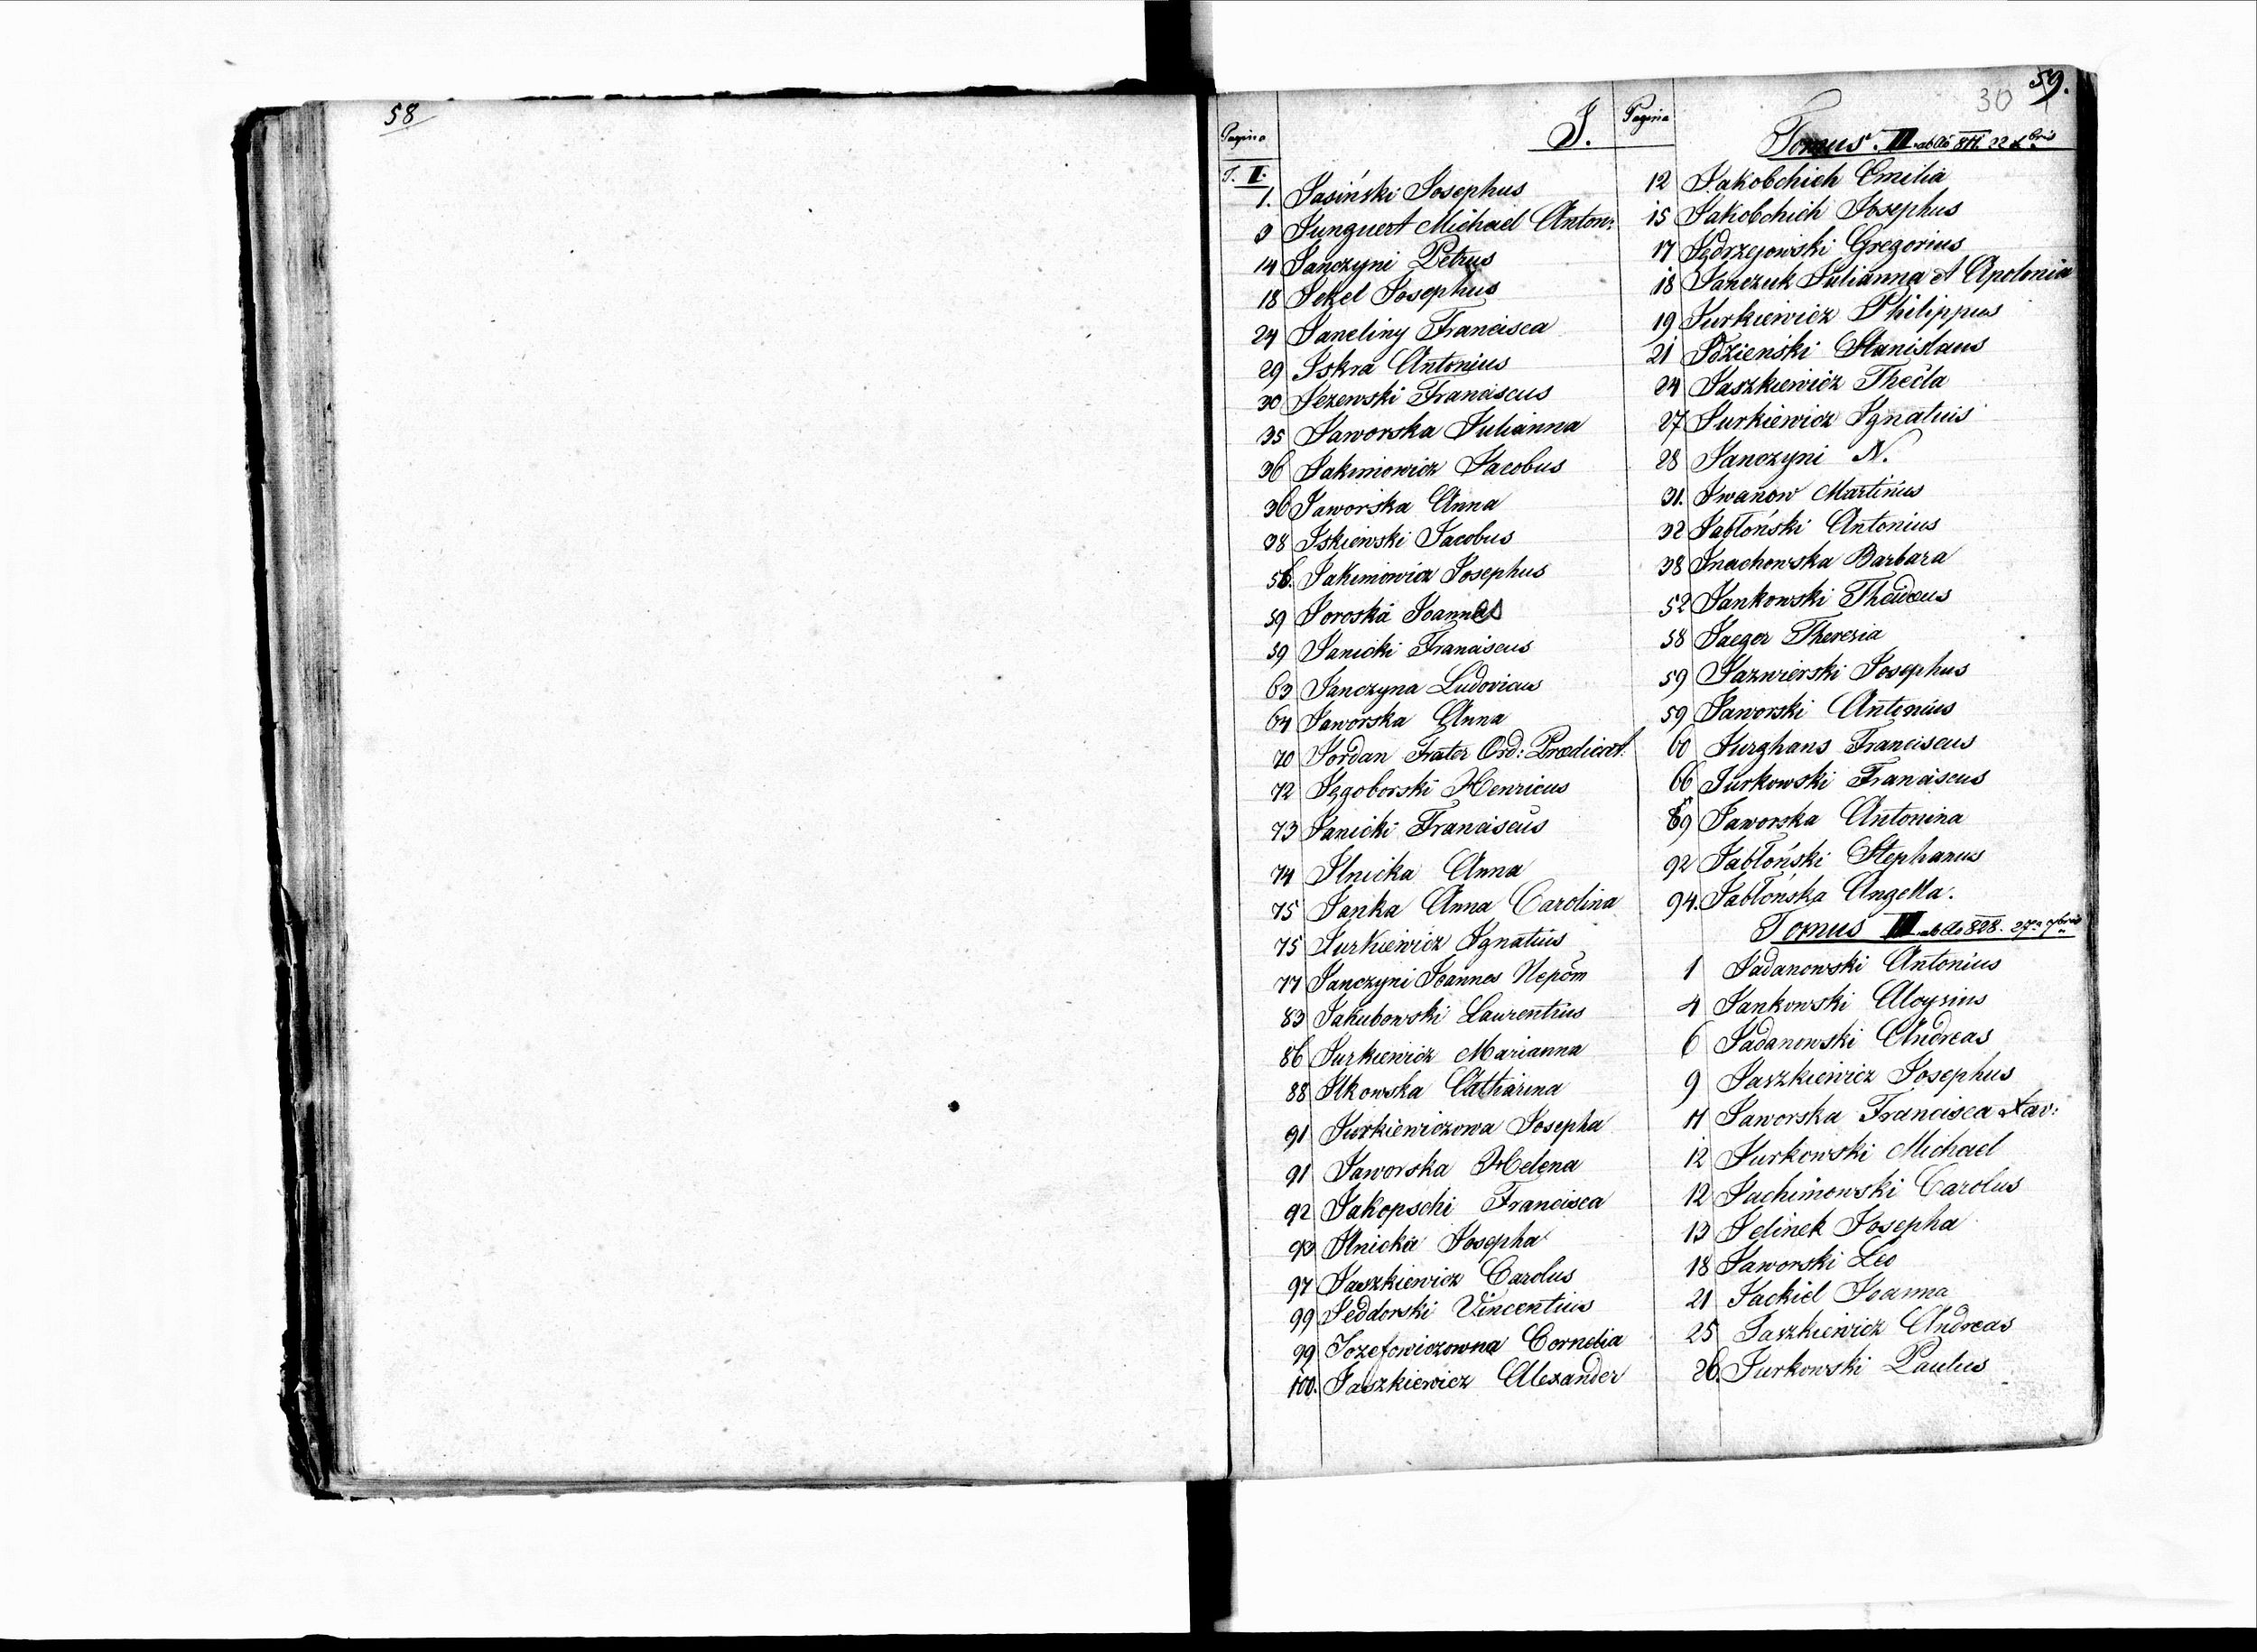 58
59.
30
Pagina
J.
Pagina
T. I.
1. Jasiński Josephus
9 Junguert Michael Anton:
14 Janczyni Petrus
18 Jekel Josephus
24 Janeliny Francisca
29 Iskra Antonius
30 Jezewski Franciscus
35 Jaworska Julianna
36 Jakimowicz Jacobus
36 Jaworska Anna
38 Iskiewski Jacobus
56. Jakimowicz Josephus
59 Joroska Joanna
59 Janicki Franciscus
63 Janczyna Ludovicus
64 Jaworska Anna
70 Jordan Frater Ord: Prædicat:
72 Jęgoborski Henricus
73 Janicki Franciscus
74 Ilnicka Anna
75 Janka Anna Carolina
75 Jurkiewicz Ignatius
77 Janczyni Joannes Nepom
83 Jakubowski Laurentius
86 Jurkiewicz Marianna
88 Ilkowska Catharina
91 Jurkiewiczowa Josepha
91 Jaworska Helena
92 Jakopschi Francisca
93 Ilnicka Josepha
97 Jaszkiewicz Carolus
99 Jeddorski Vincentius
99 Jozefowiczowna Cornelia
100. Jaszkiewicz Alexander
Tomus II ab Ao 817. 22 Xbris
12 Jakobchich Emilia
15 Jakobchich Josephus
17 Jędrzejowski Gregorius
18 Janczuk Julianna et Apolonia
19 Jurkiewicz Philippus
21 Idzieński Stanislaus
24 Jaszkiewicz Thecla
27 Jurkiewicz Ignatius
28 Janczyni N.
31. Iwanow Martinus
32 Jabłoński Antonius
38 Inachowska Barbara
52 Jankowski Thadæus
58 Jaeger Theresia
59 Jazwierski Josephus
59 Jaworski Antonius
60 Jurghans Franciscus
66 Jurkowski Franciscus
89 Jaworska Antonina
92 Jabłoński Stephanus
94. Jabłońska Angella.
Tomus III ab Ao 828. 27a 7bris
1 Jadanowski Antonius
4 Jankowski Aloysius
6 Jadanowski Andreas
9 Jaszkiewicz Josephus
11 Jaworska Francisca Xav:
12 Jurkowski Michael
12 Jachimowski Carolus
13 Jelinek Josepha
18 Jaworski Leo
21 Jackiel Joanna
25 Jaszkiewicz Andreas
26. Jurkowski Paulus